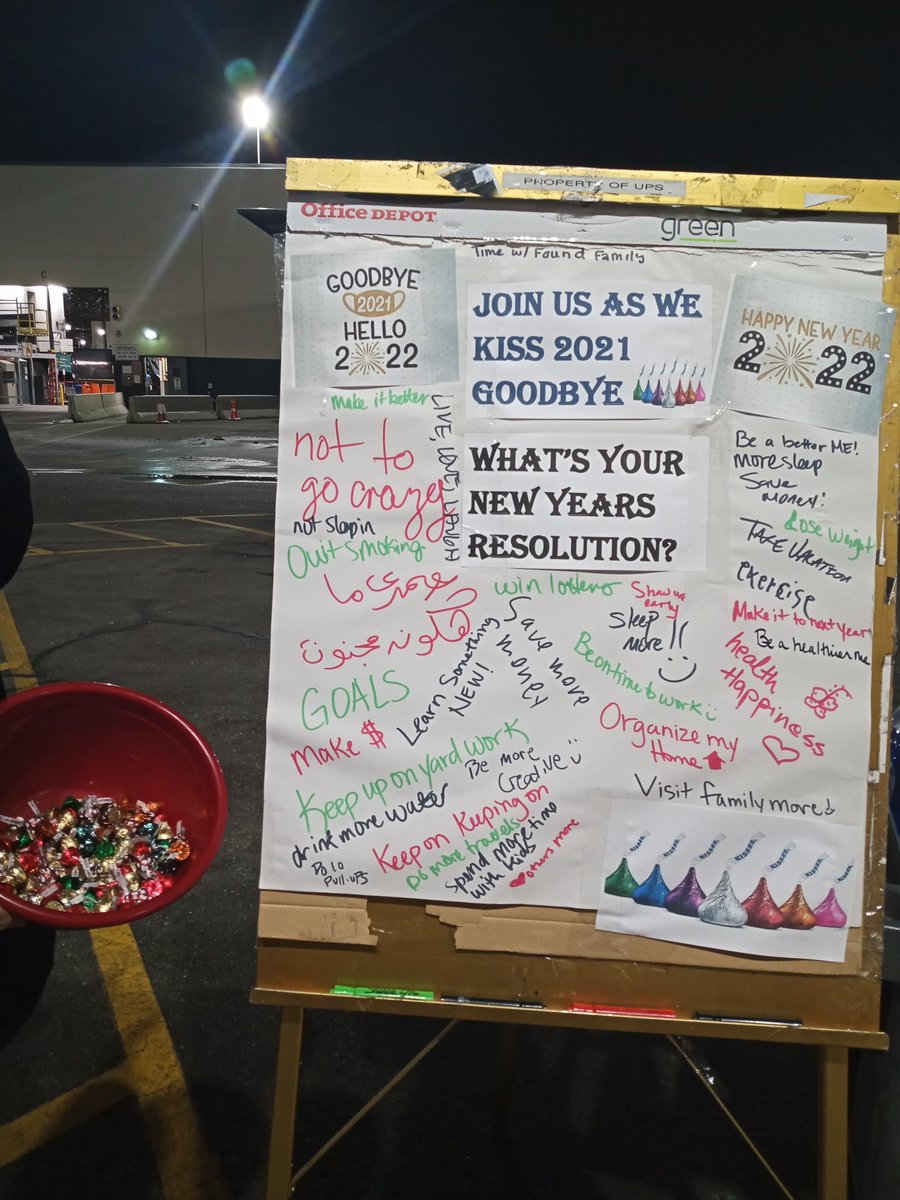 PROPERTY OF UPS
Office DEPOT
green
Time w/ Found Family
GOODBYE
2021
HELLO
2022
JOIN US AS WE
KISS 2021
GOODBYE
HAPPY NEW YEAR
2022
WHAT'S YOUR
NEW YEARS
RESOLUTION?
make it better
LIVE, LOVE, LAUGH
not to
go crazy
not slapin
Quit smoking
GOALS
make $
Learn Something
NEW!
Save more
money
win lottery
Show up
early
Sleep
more!!
Be on time to work
Organize my
Home
Be a better ME!
More sleep
Save
money!
Lose weight
TAKE VACATION
exercise
Make it to next year
Be a healthier me
health
Happiness
Keep up on yard work
Be more
Creative
drink more water
Do 10
Pull-ups
Keep on Keeping on
Do more travels
Spend more time
with kids
others more
Visit family more!
KISSES
KISSES
KISSES
KISSES
KISSES
KISSES
KISSES